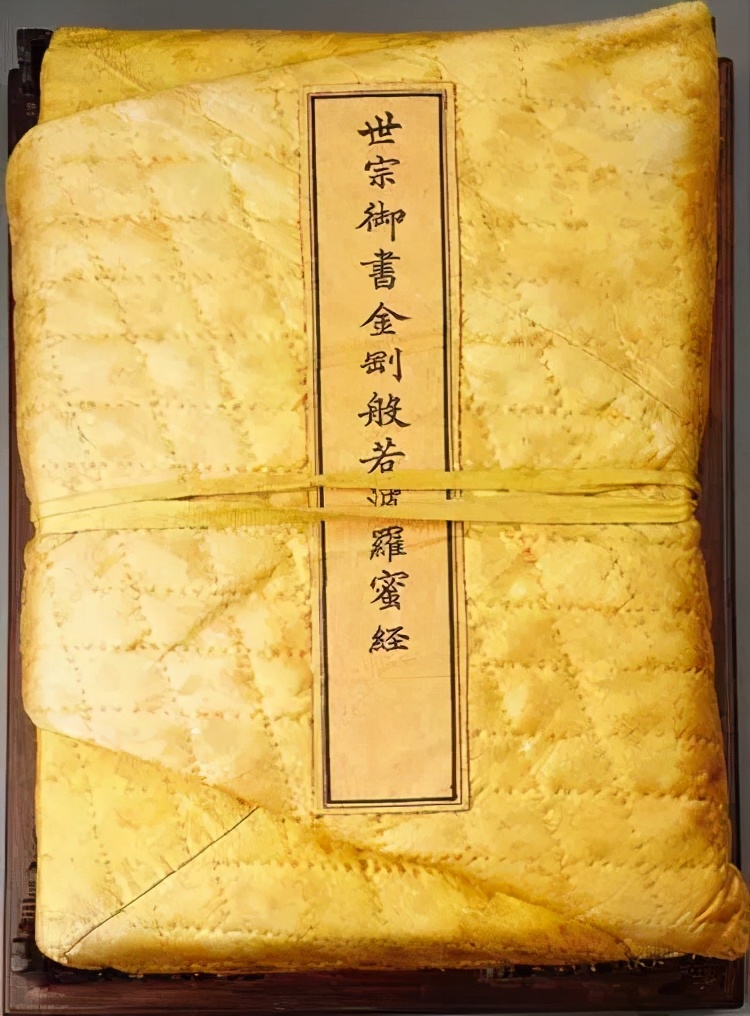 世宗御書金剛般若波羅蜜経